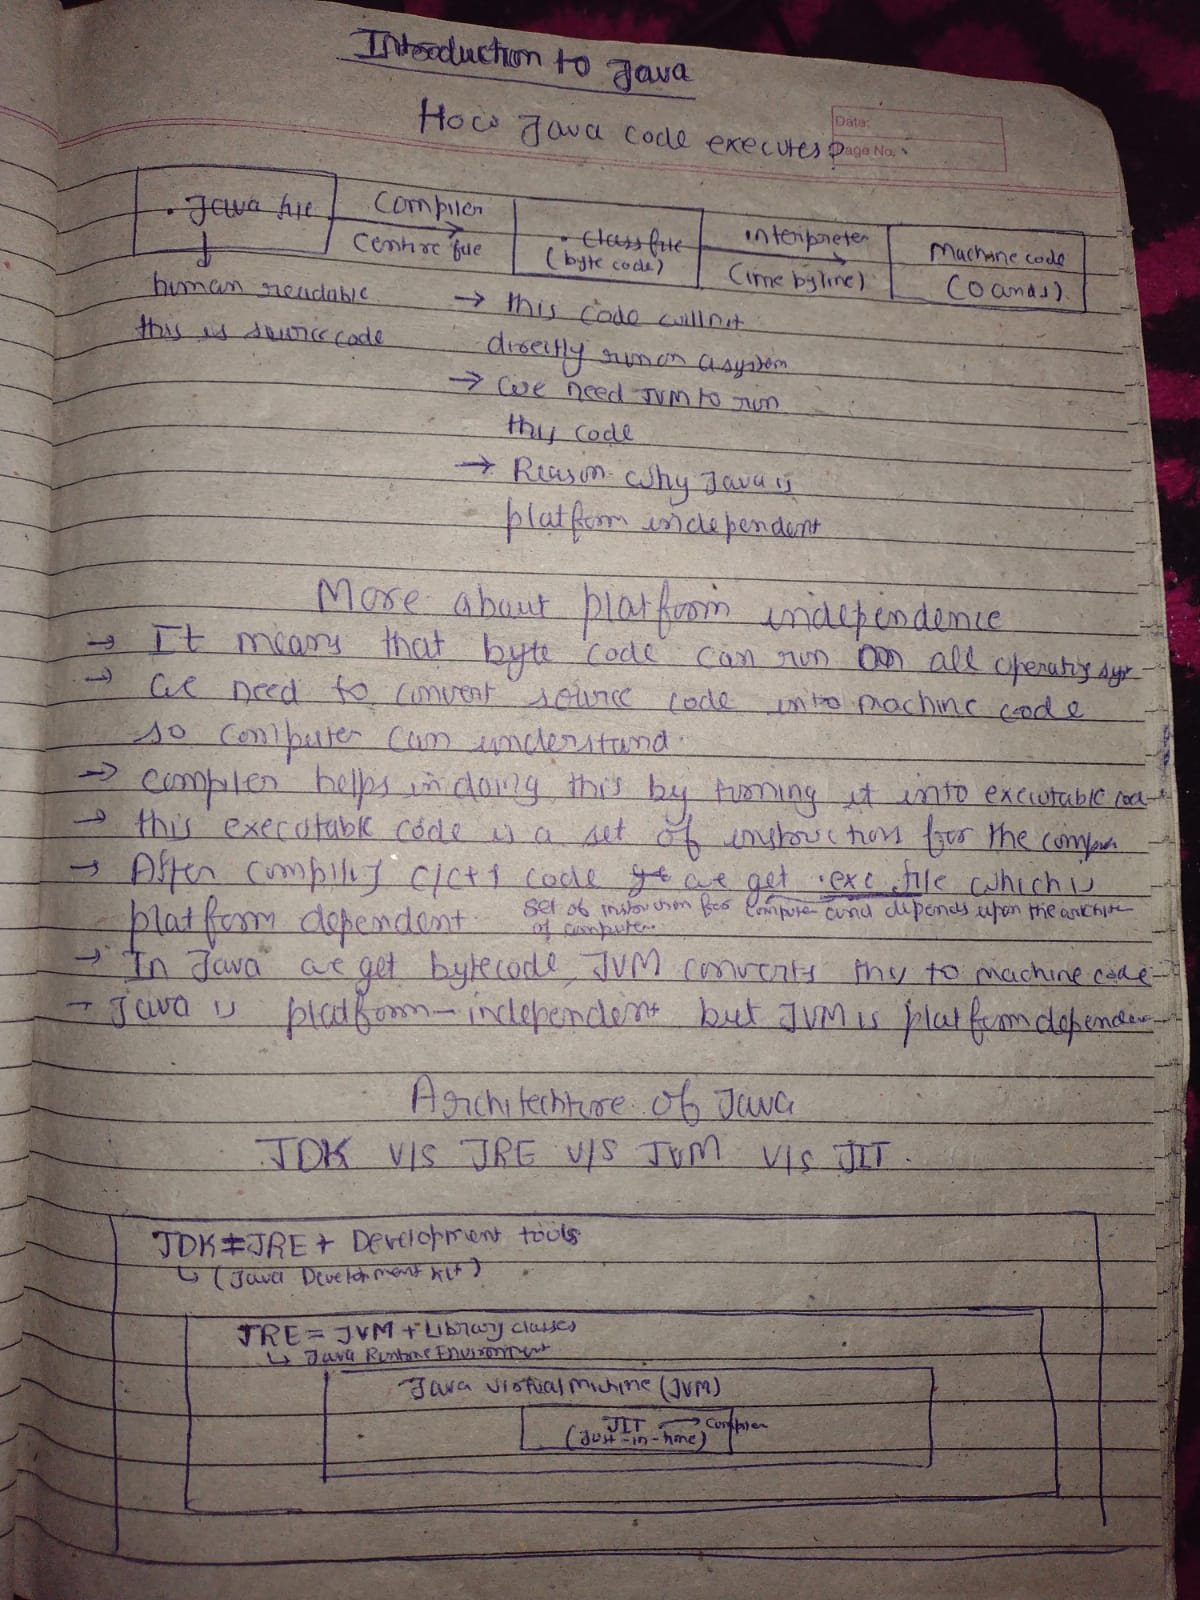 Introduction to Java
Date:
How Java code executes?
Page No.
.Java file
Compiler
(entire file
.class file
(byte code)
interpreter
(line by line)
Machine code
(0 and 1)
human readable
this is source code
→ this code will not
directly run on a system
→ we need JVM to run
this code
→ Reason why Java is
platform independent
More about platform independence
→ It means that byte code can run on all operating sys
→ we need to convert source code into machine code
so computer can understand.
→ compiler helps in doing this by turning it into executable cod
→ this executable code is a set of instructions for the comp
→ After compiling C/C++ code we get .exe file which is
platform dependent.
set of instruction for computer and depends upon the archite
of computer.
→ In Java we get bytecode, JVM converts this to machine code
→ Java is platform-independent but JVM is platform dependen
Architechture of Java
JDK v/s JRE v/s JVM v/s JIT.
JDK = JRE + Development tools
↳ (Java Development Kit)
JRE = JVM + Library classes
↳ Java Runtime Environment
Java virtual machine (JVM)
JIT → Compiler
(Just-in-time)